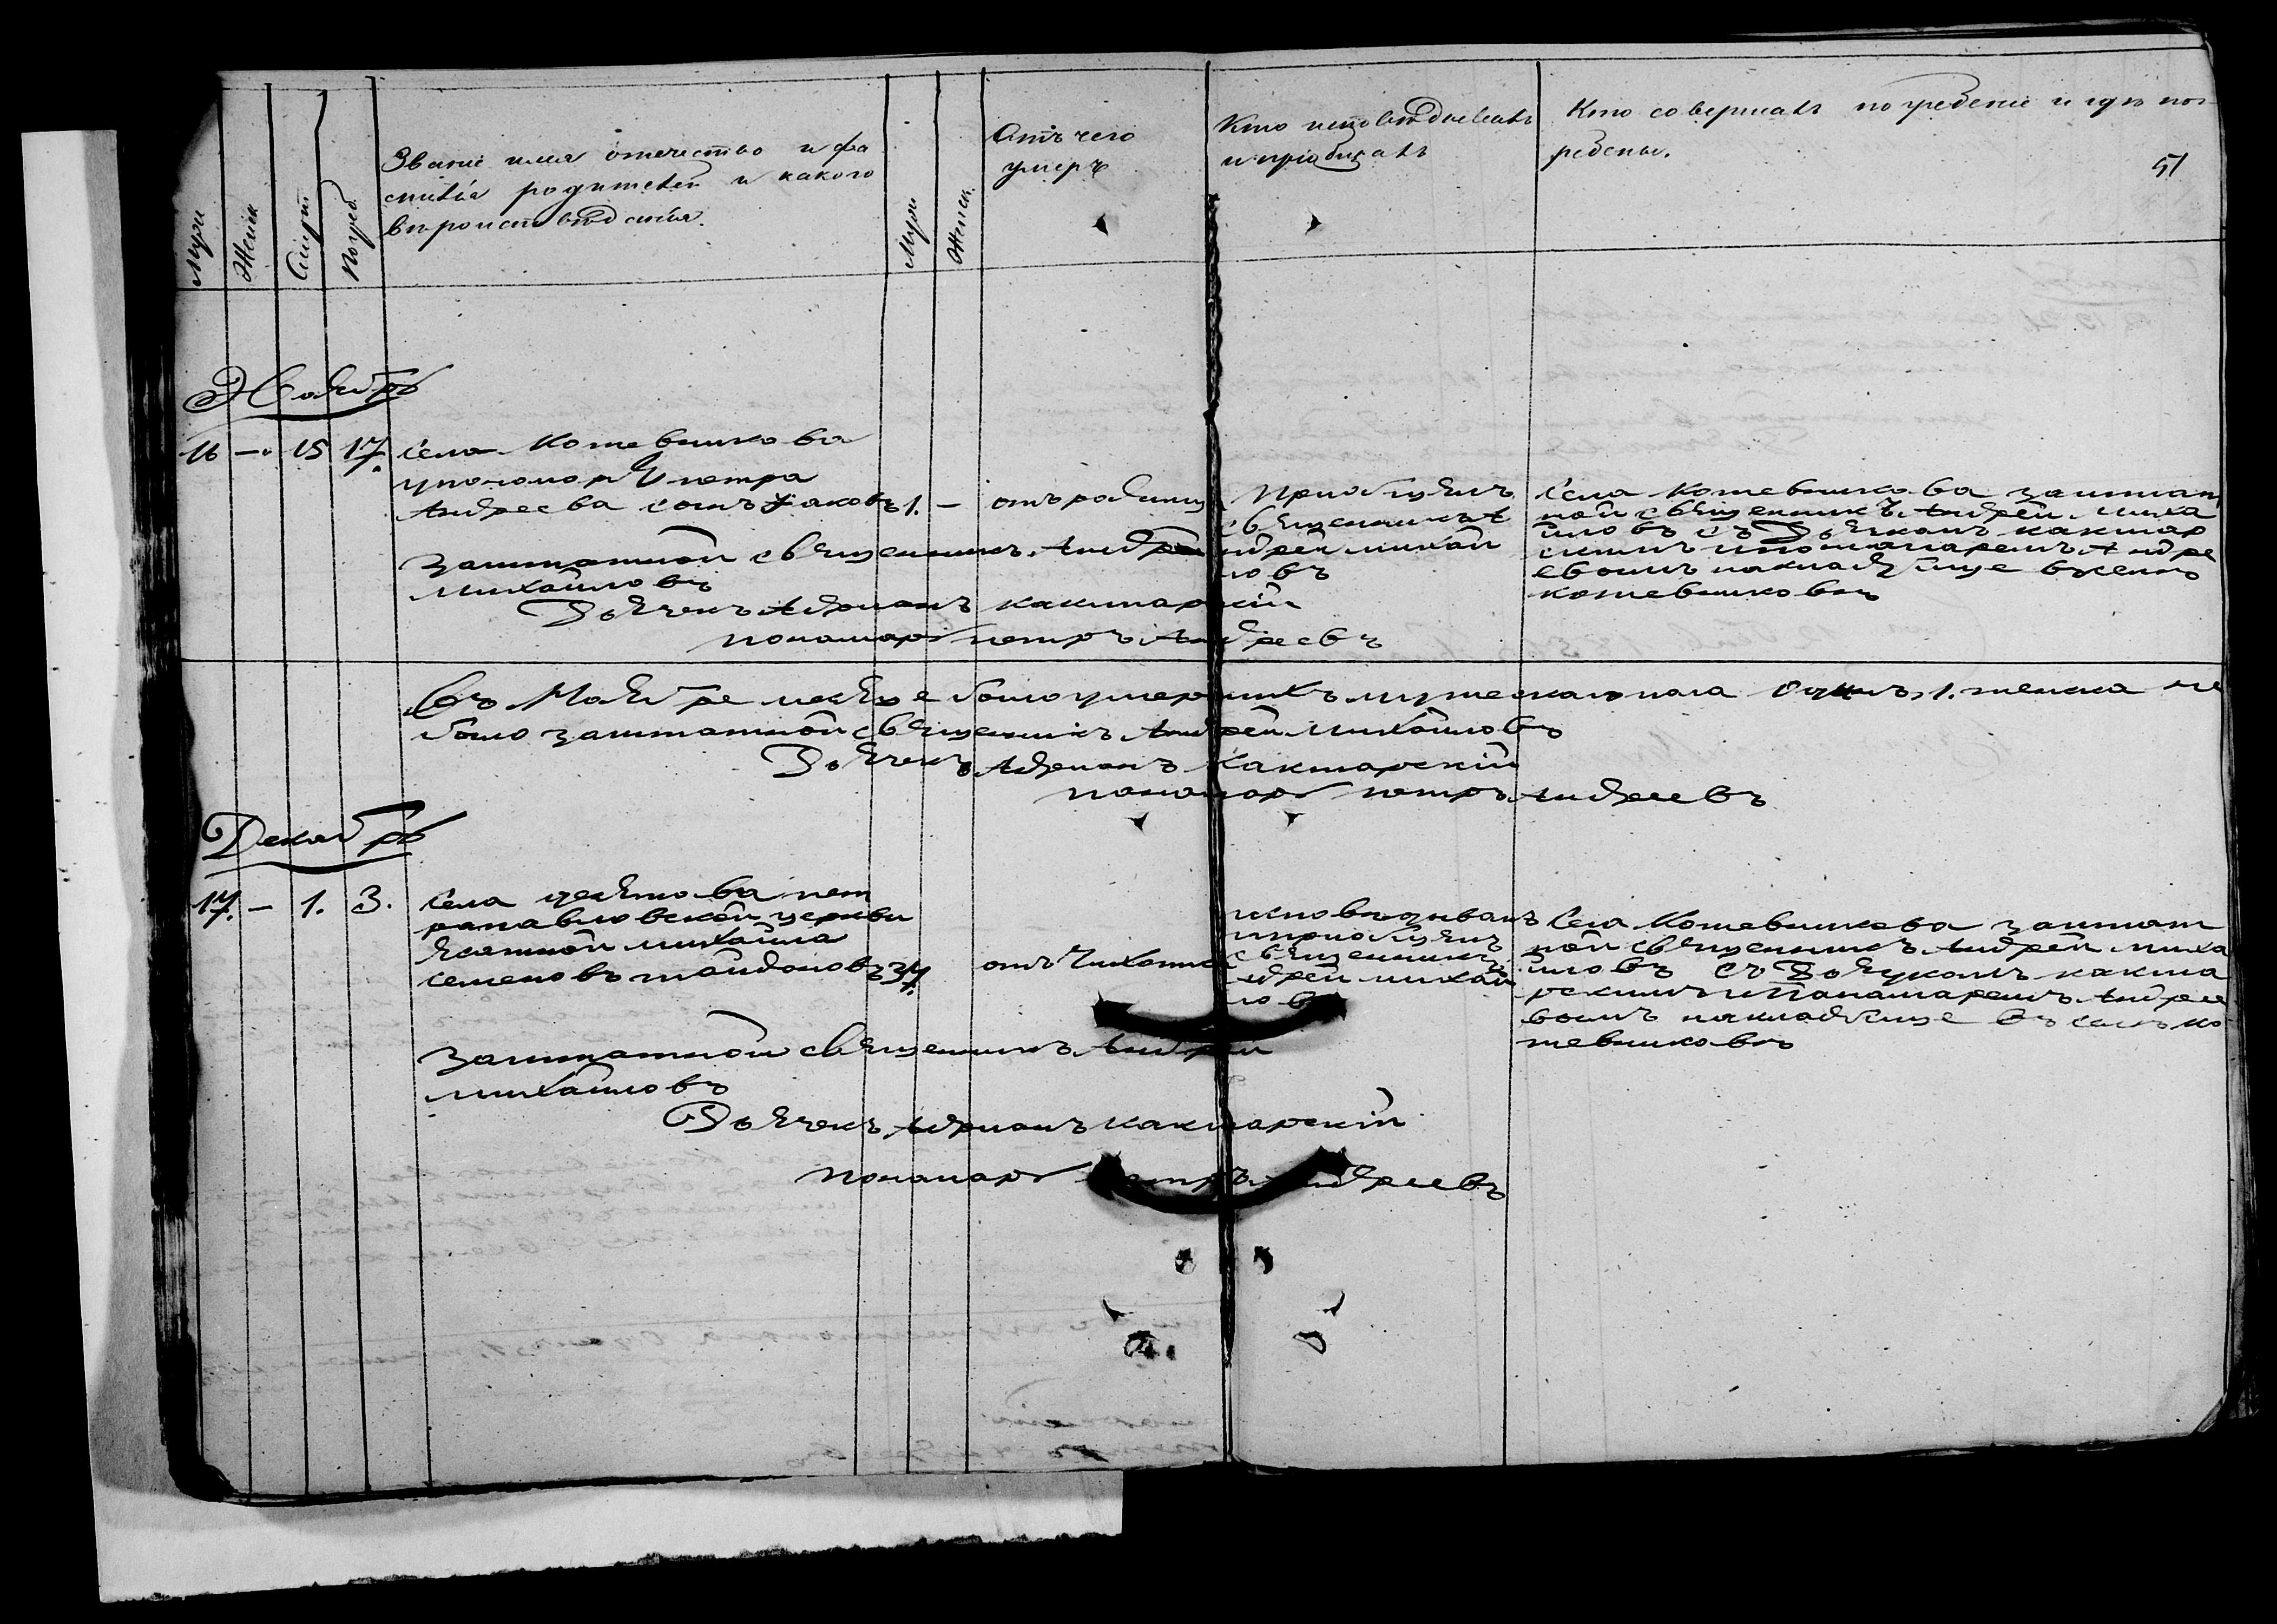 Званіе имя отечество и фа
милія родителей и какого
вѣроисповѣданія.
Мужи
Женск
Смерт
Погреб.
Мужи
Женск.
Отъ чего
умеръ
Кто исповѣдывалъ
и пріобщалъ
Кто совершалъ погребеніе и гдѣ пог
ребены.
51
Ноябрь
16 — 15 17. села Кожевникова
упономоря петра
Андреева сынъ Яаковъ 1. — отъ родимц
Приобщялъ
священникъ А
ндрей михай
ловъ
Села Кожевникова заштат
ной священникъ Андрей миха
йловъ съ Дьячкомъ какшар
скимъ ипономаремъ Андре
евымъ накладбище вселѣ
кожевниковѣ
заштатной священникъ Андрей
михайловъ
Дьячекъ Адрианъ какшарскій
пономарь петръ Андреевъ
Въ Ноябре месяце было умершихъ мужескаго пола Одинъ, 1. женска не
было заштатной священикъ Андрей Михайловъ
Дьячекъ Адрианъ Какшарскій
пономарь петръ Андреевъ
Декабрь
17. — 1. 3. села пет
рапавловской церкви
михайла
семеновъ 34 отъ Чихотки
исповѣдывалъ
иприобщялъ
священникъ
Андрей михай
ловъ
Села Кожевникова заштат
ной священникъ Андрей миха
йловъ съ Дьячкомъ какша
рскимъ иПонамаремъ Андрее
вымъ накладбище въ селѣ ко
жевниковѣ
заштатной священникъ Андрей
михайловъ
Дьячекъ Адрианъ какшарскій
пономарь петръ Андреевъ